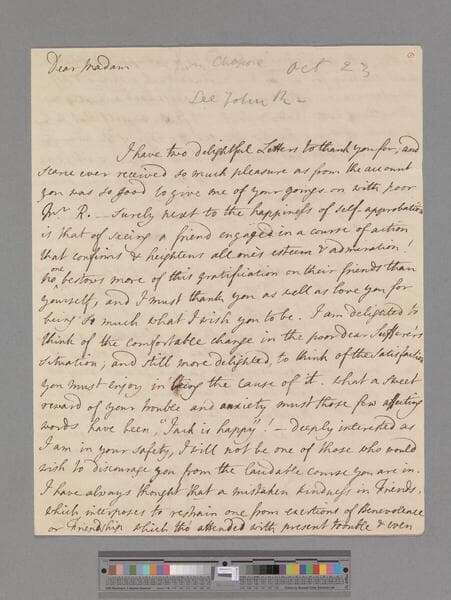 Dear Madam
Chapone Oct 23
See John R
I have two delightful Letters to thank you for, and
scarce ever received so much pleasure as from the account
you was so good to give me of your goings on with poor
Mr R. — Surely next to the happiness of self-approbation
is that of seeing a friend engaged in a course of action
that confirms & heightens all one's esteem & admiration!
No one bestows more of this gratification on their friends than
yourself, and I must thank you as well as love you for
being so much what I wish you to be. I am delighted to
think of the comfortable change in the poor dear Sufferer's
situation; and still more delighted, to think of the Satisfaction
you must enjoy in being the cause of it. what a sweet
reward of your trouble and anxiety must those few affecting
words have been, "Jack is happy"! — Deeply interested as
I am in your safety, I will not be one of those who would
wish to discourage you from the laudable course you are in.
I have always thought that a mistaken kindness in Friends,
which interposes to restrain one from exertions of Benevolence
or Friendship which tho' attended with present trouble & even